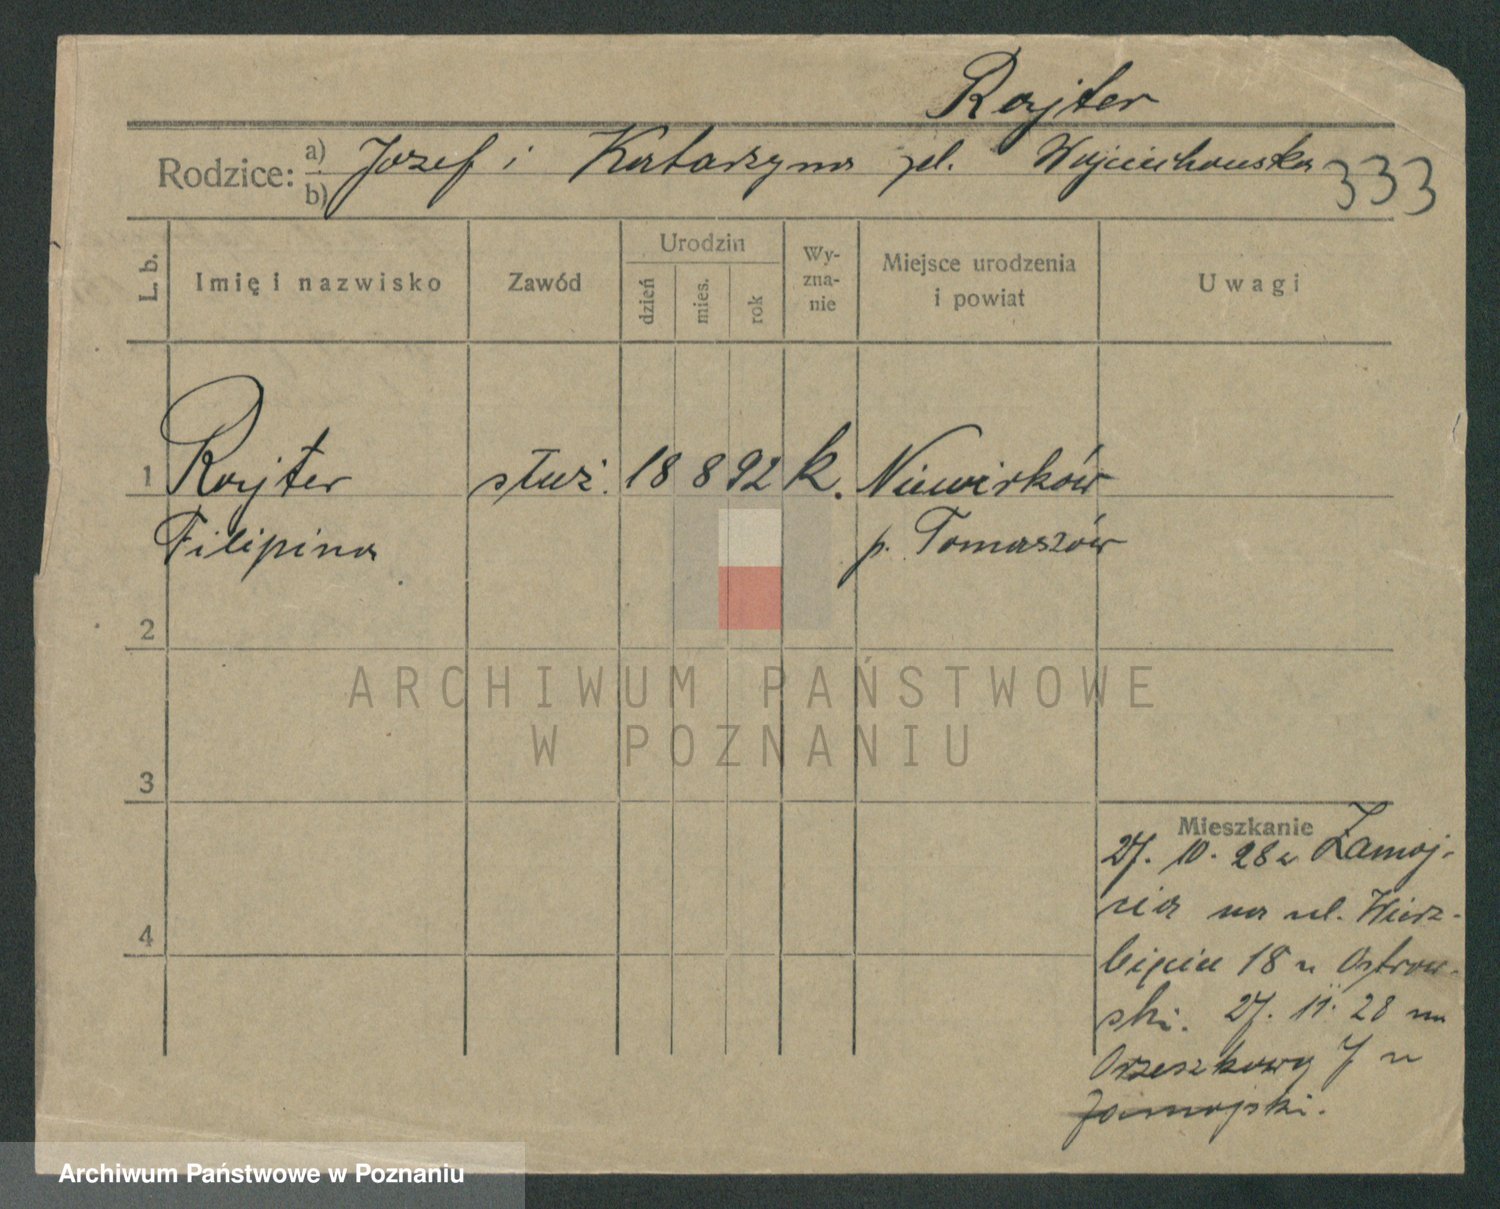 Rajter
Rodzice: a) Józef i Katarzyna pd. Wojciechowska 333
b)
L. b. Imię i nazwisko Zawód Urodzin dzień mies. rok Wy-zna-nie Miejsce urodzenia i powiat Uwagi
1 Rajter służ. 18 8 92 k. Niewirków
Filipina p. Tomaszów
2
3
4
Mieszkanie
27. 10. 28 z Zamoj-
cia na ul. Wierz-
bięcice 18 u Ostrow-
ski. 27. 11. 28 na
Orzeszkowy 7 u
Zamojski.
ARCHIWUM PAŃSTWOWE
W POZNANIU
Archiwum Państwowe w Poznaniu